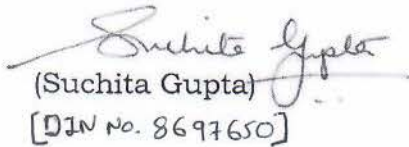 Suchita Gupta
(Suchita Gupta)
[DIN No. 8697650]